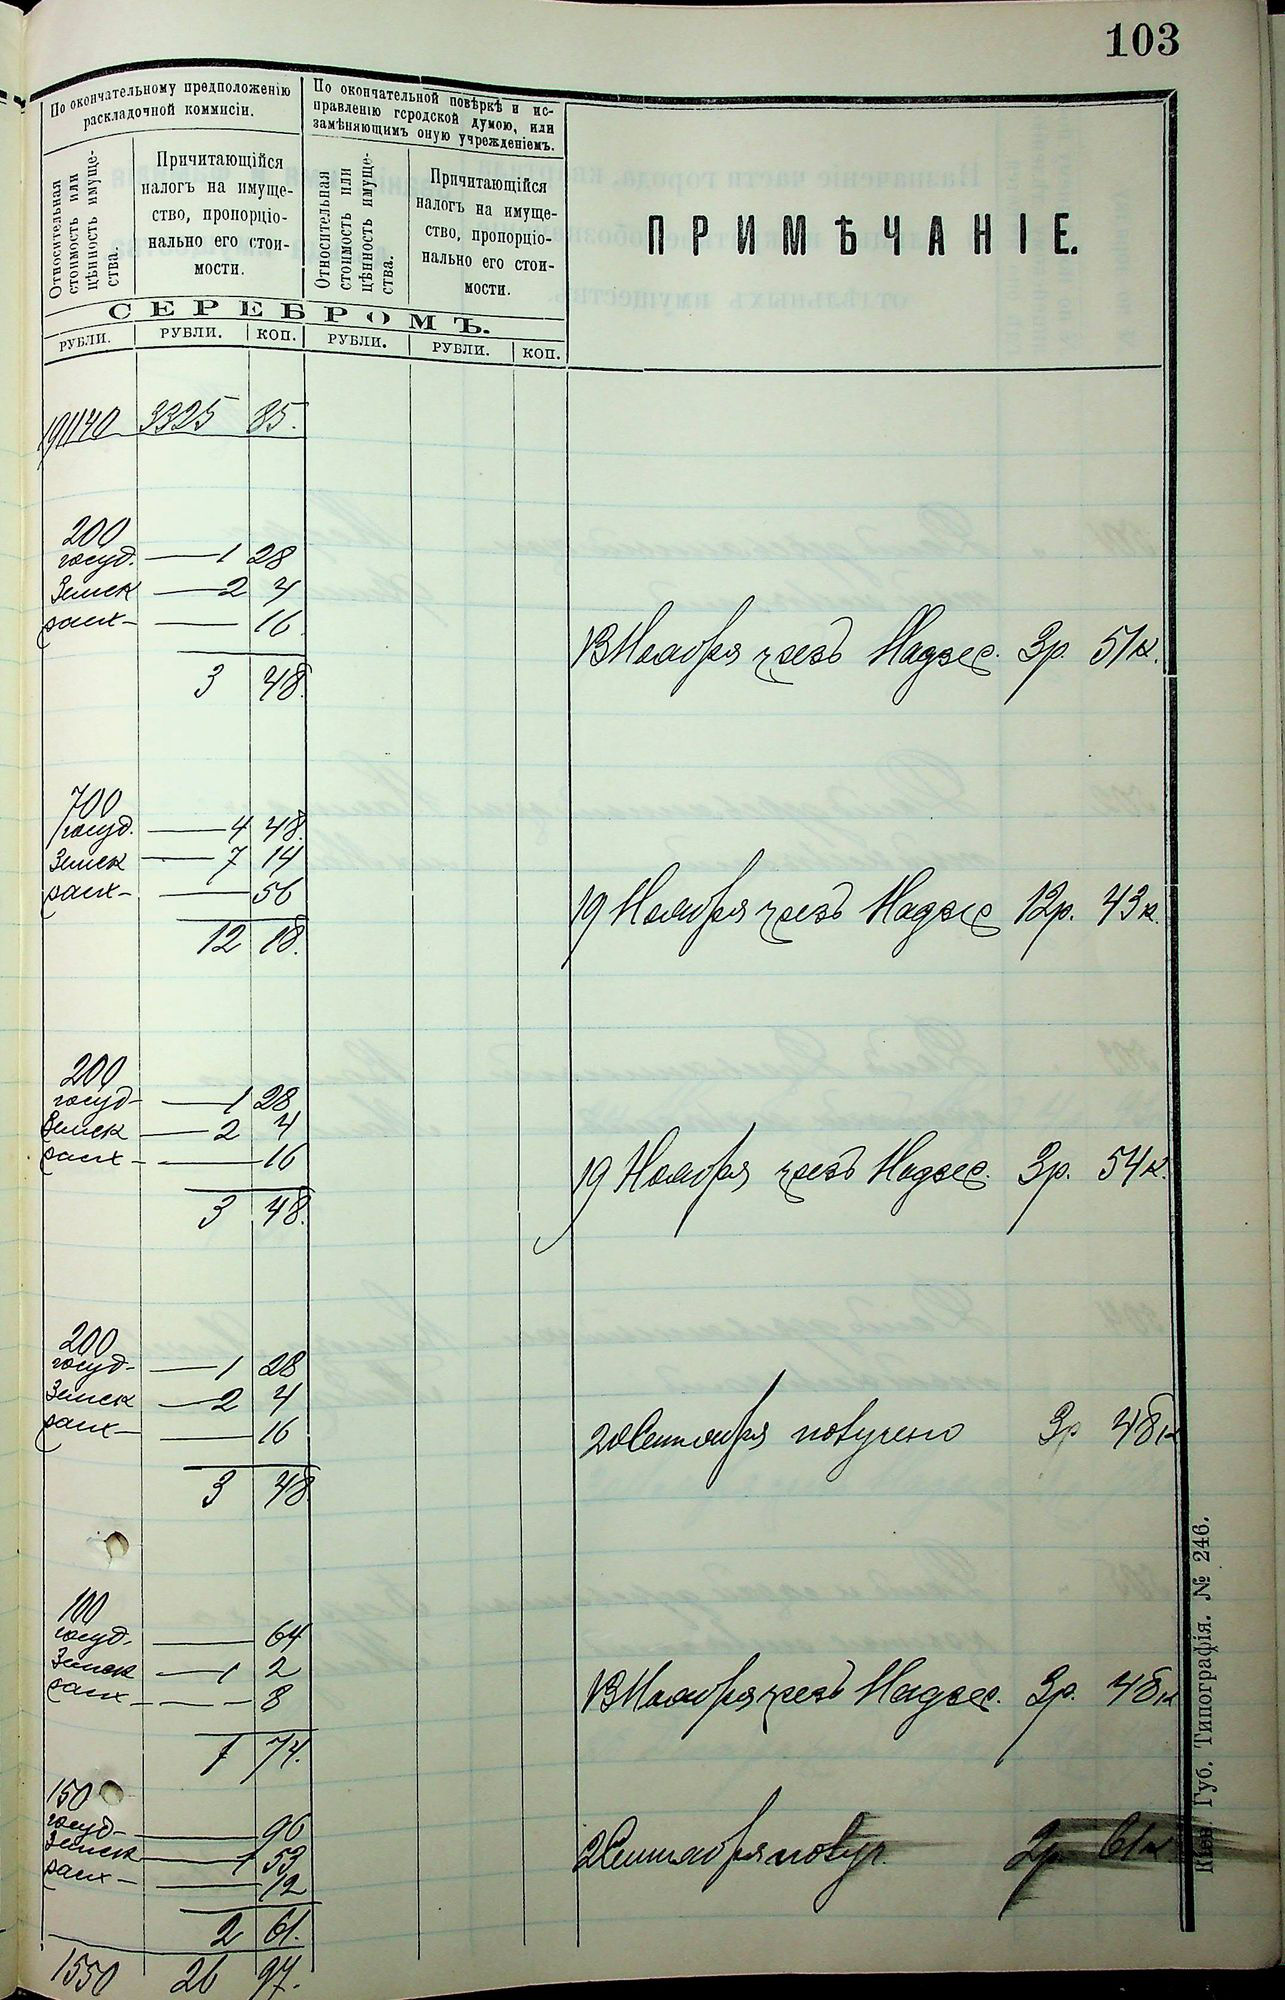 103
По окончательному предположенію
раскладочной коммисіи.
По окончательной повѣркѣ и ис-
правленію городской думою, или
замѣняющимъ оную учрежденіемъ.
Относительная
стоимость или
цѣнность имуще-
ства.
Причитающійся
налогъ на имуще-
ство, пропорціо-
нально его стои-
мости.
Относительная
стоимость или
цѣнность имуще-
ства.
Причитающійся
налогъ на имуще-
ство, пропорціо-
нально его стои-
мости.
ПРИМѢЧАНІЕ.
СЕРЕБРОМЪ.
РУБЛИ. РУБЛИ. КОП. РУБЛИ. РУБЛИ. КОП.
191140 3325 85.
200
госуд. — 1 28
Земск — 2 4
расх — 16
13 Ноября чрезъ Надзес. 3р. 51к.
3 48.
700
госуд. — 4 48.
Земск — 7 14
расх — 56
19 Ноября чрезъ Надзес 12р. 43к.
12 18.
200
госуд — 1 28
Земск — 2 4
расх — 16
19 Ноября чрезъ Надзес. 3р. 54к.
3 48.
200
госуд — 1 28
Земск — 2 4
расх — 16
20 Сентября получено 3р 48к
3 48
100
госуд. — 64
Земск — 1 2
расх — 8
13 Ноября чрезъ Надзес. 3р. 48к
1 74.
150
госуд — 96
Земск — 1 53
расх — 12
2 Сентября получ. 2р 61к
2 61.
1550 26 97.
Кіев. Губ. Типографія. № 246.